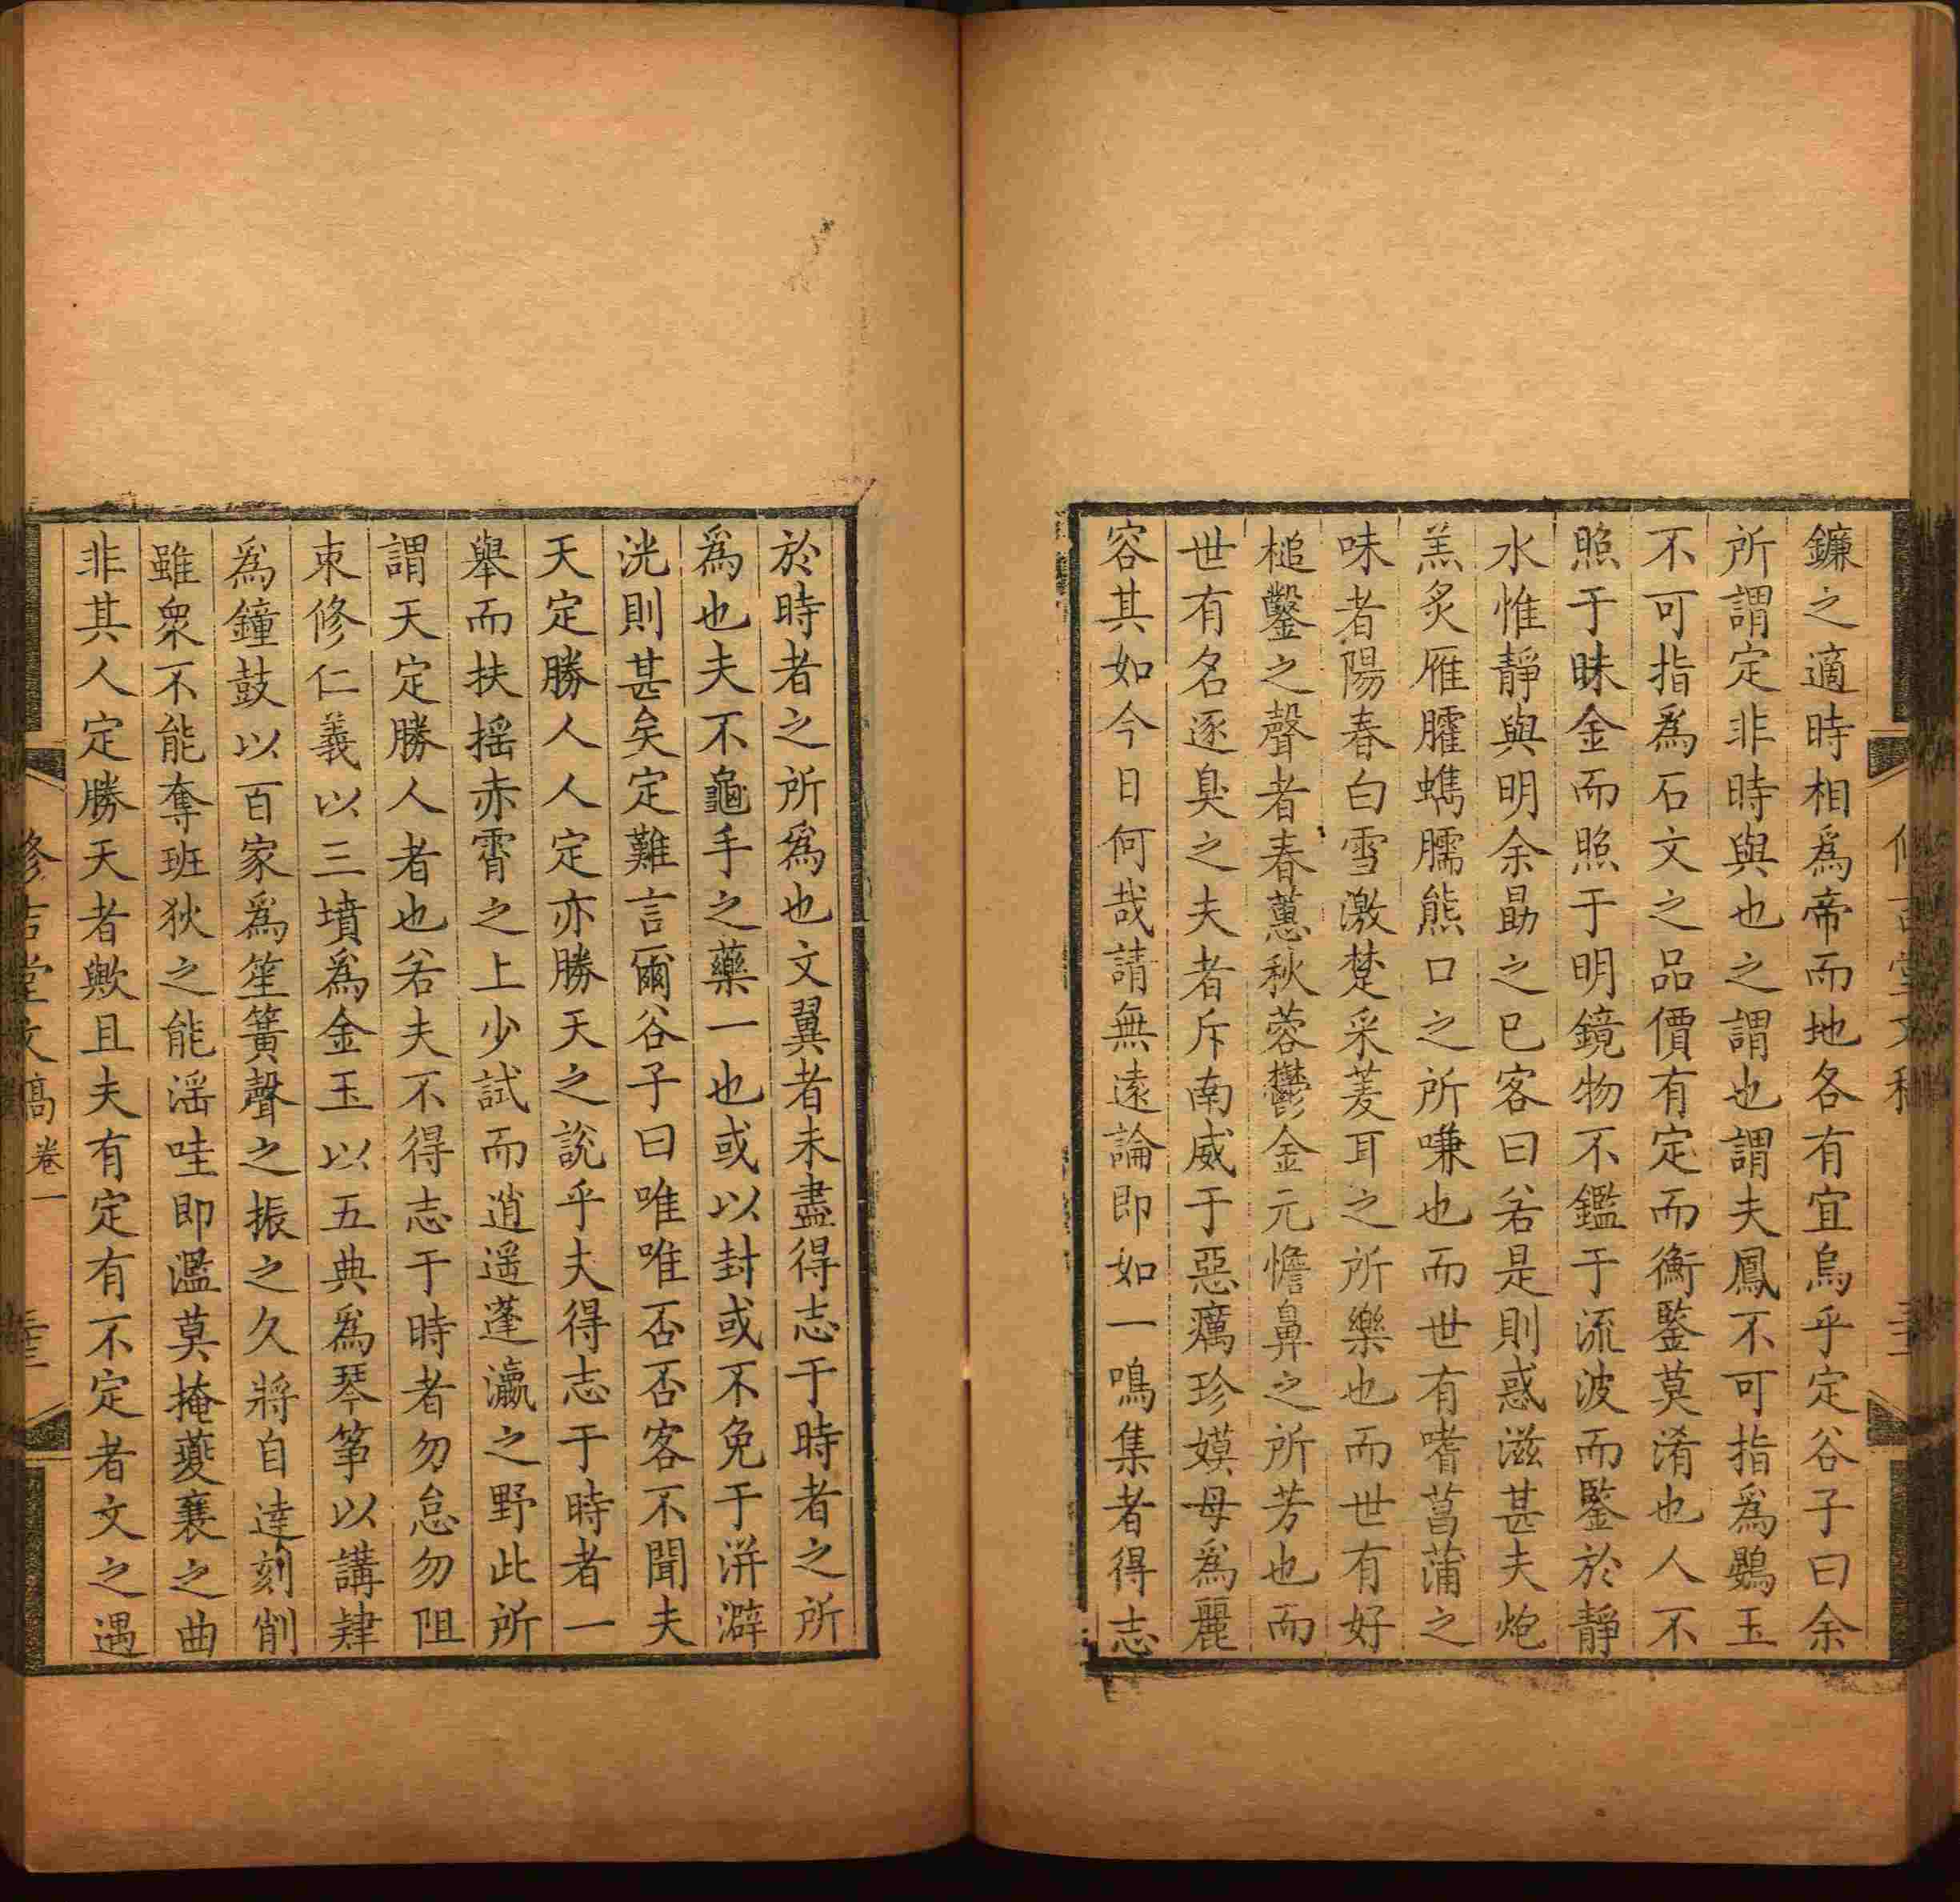 鐮之適時相爲帝而地各有宜烏乎定谷子曰余
所謂定非時與也之謂也謂夫鳳不可指爲鷃玉
不可指爲石文之品價有定而衡鍳莫淆也人不
照于昧金而照于明鏡物不鑑于流波而鍳於靜
水惟靜與明余勗之已客曰若是則惑滋甚夫炮
羔炙雁臛蠵臑熊口之所嗛也而世有嗜菖蒲之
味者陽春白雪激楚采菱耳之所樂也而世有好
槌鑿之聲者春蕙秋蓉鬱金元憺鼻之所芳也而
世有名逐臭之夫者斥南威于惡癘珍嫫母爲麗
容其如今日何哉請無遠論即如一鳴集者得志
於時者之所爲也文翼者未盡得志于時者之所
爲也夫不龜手之藥一也或以封或不免于洴澼
洸則甚矣定難言爾谷子曰唯唯否否客不聞夫
天定勝人人定亦勝天之說乎夫得志于時者一
舉而扶揺赤霄之上少試而逍遥蓬瀛之野此所
謂天定勝人者也若夫不得志于時者勿怠勿阻
束修仁義以三墳爲金玉以五典爲琴筝以講肄
爲鐘鼓以百家爲笙簧聲之振之久將自達刻削
雖衆不能奪班狄之能滛哇即濫莫掩夔襄之曲
非其人定勝天者歟且夫有定有不定者文之遇
修吉堂文髙卷一